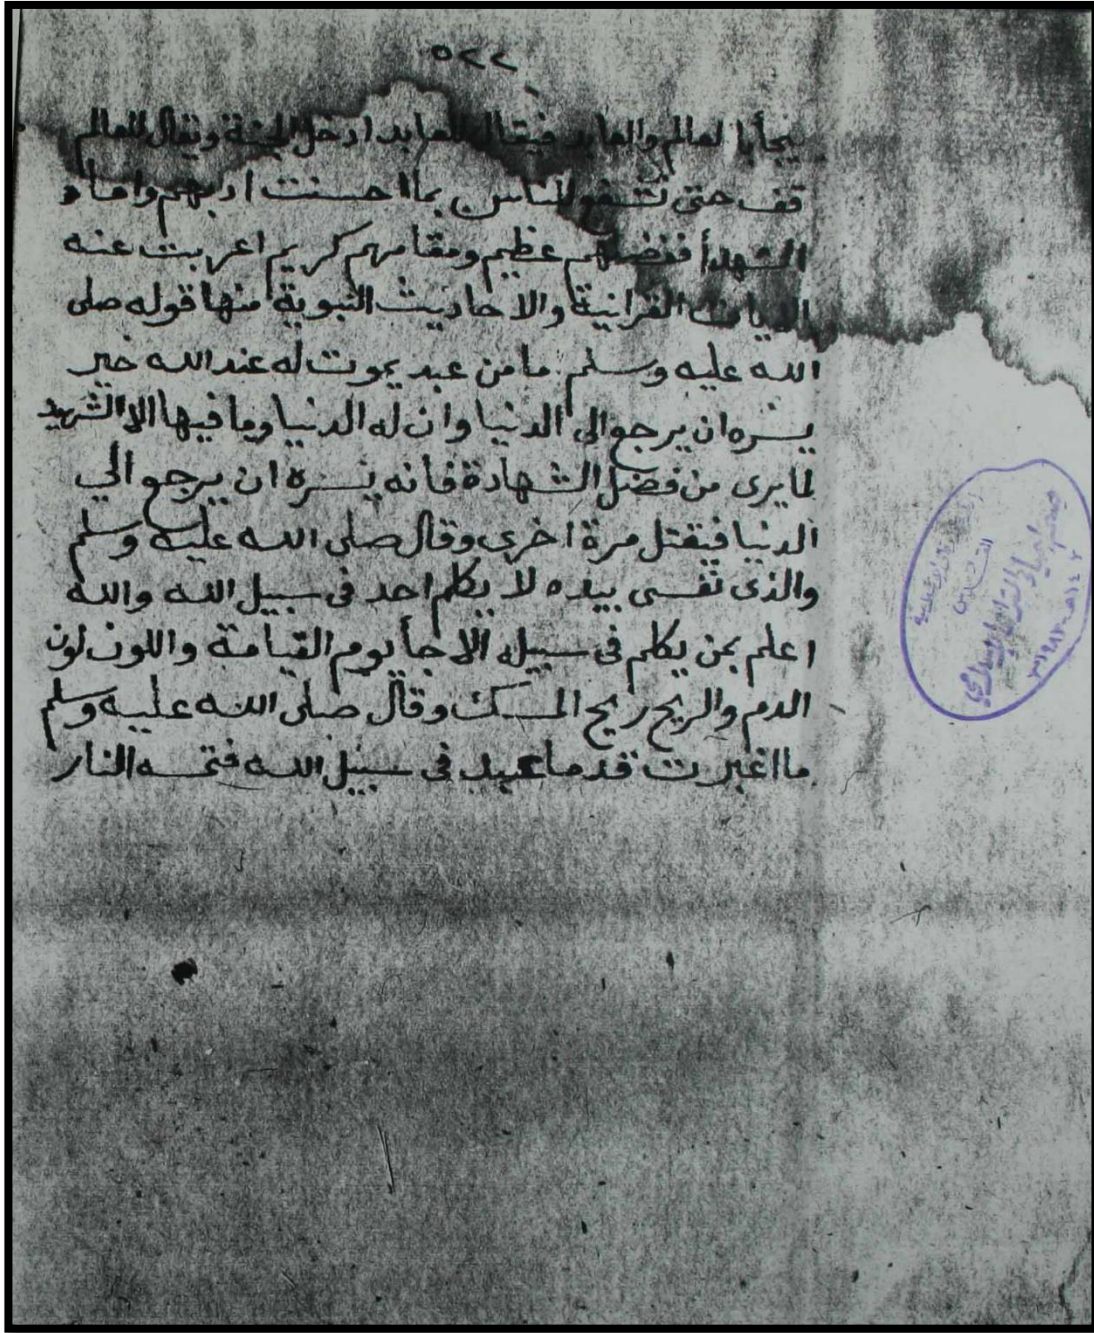 ٥٢٢
يجأبا لعالم والعابد فيقال للعابد ادخل الجنة ويقال للعالم
قف حتى تشفع للناس بما احسنت ادبهم واما
الشهدأ ففضلهم عظيم ومقامهم كريم اعربت عنه
الايات القرانية والاحاديث النبوية منها قوله صلى
الله عليه وسلم ما من عبد يموت له عند الله خير
يسره ان يرجع الى الدنيا وان له الدنيا وما فيها الا الشهيد
لما يرى من فضل الشهادة فانه يسره ان يرجع الي
الدنيا فيقتل مرة اخرى وقال صلى الله عليه وسلم
والذى نفسى بيده لا يكلم احد فى سبيل الله والله
اعلم بمن يكلم فى سبيله الا جأ يوم القيامة واللون لون
الدم والريح ريح المسك وقال صلى الله عليه وسلم
ما اغبرت قدما عبد فى سبيل الله فتمسه النار
القدس